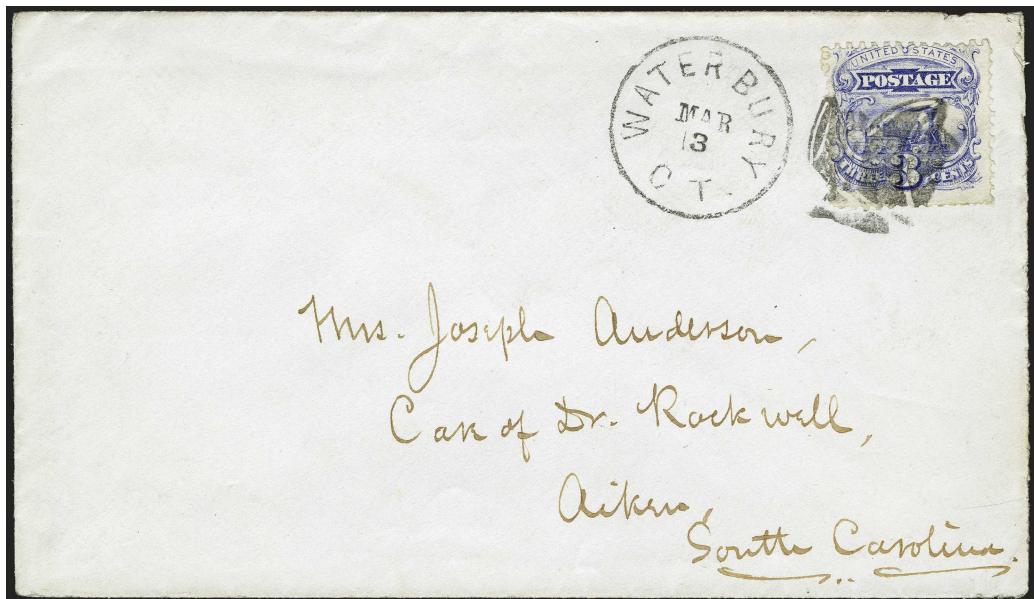 WATERBURY
MAR
13
CT.
UNITED STATES
POSTAGE
THREE 3 CENTS
Mrs. Joseph Anderson,
Care of Dr. Rockwell,
Aiken,
South Carolina.